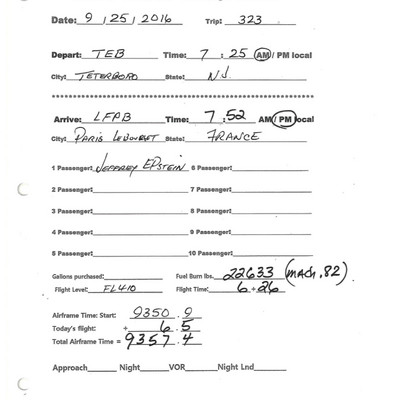 Date: 9 / 25 / 2016 Trip: 323
Depart: TEB Time: 7 : 25 AM / PM local
City: TETERBORO State: NJ
****************************************************************
Arrive: LFPB Time: 7 : 52 AM / PM local
City: PARIS LEBOURGET State: FRANCE
1 Passenger: JEFFREY EPSTEIN 6 Passenger:
2 Passenger: 7 Passenger:
3 Passenger: 8 Passenger:
4 Passenger: 9 Passenger:
5 Passenger: 10 Passenger:
Gallons purchased: Fuel Burn lbs. 22633 (MACH .82)
Flight Level: FL410 Flight Time: 6 + 26
Airframe Time: Start: 9350 . 9
Today's flight: + 6 . 5
Total Airframe Time = 9357 . 4
Approach Night VOR Night Lnd